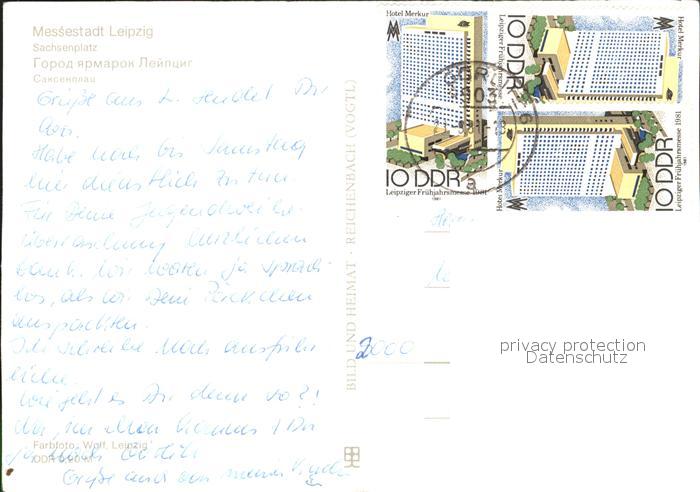 Messestadt Leipzig
Sachsenplatz
Город ярмарок Лейпциг
Саксенплац
Grüße aus L. sendet Dir
Habe noch bis Samstag
hier dienstlich zu tun
Für Deine Jugendweihe
überraschung herzlichen
Dank. Wir waren ja sprach-
los, als wir Dein Päckchen
auspackten.
Ich schreibe noch ausführ-
licher.
Wie geht es Dir denn so?!
Grüße auch von meinen Kindern
Farbfoto: Wolf, Leipzig
BILD UND HEIMAT · REICHENBACH (VOGTL)
Hotel Merkur
10 DDR
Leipziger Frühjahrsmesse 1981
Hotel Merkur
10 DDR
Leipziger Frühjahrsmesse 1981
Hotel Merkur
10 DDR
Leipziger Frühjahrsmesse 1981
2000
privacy protection
Datenschutz